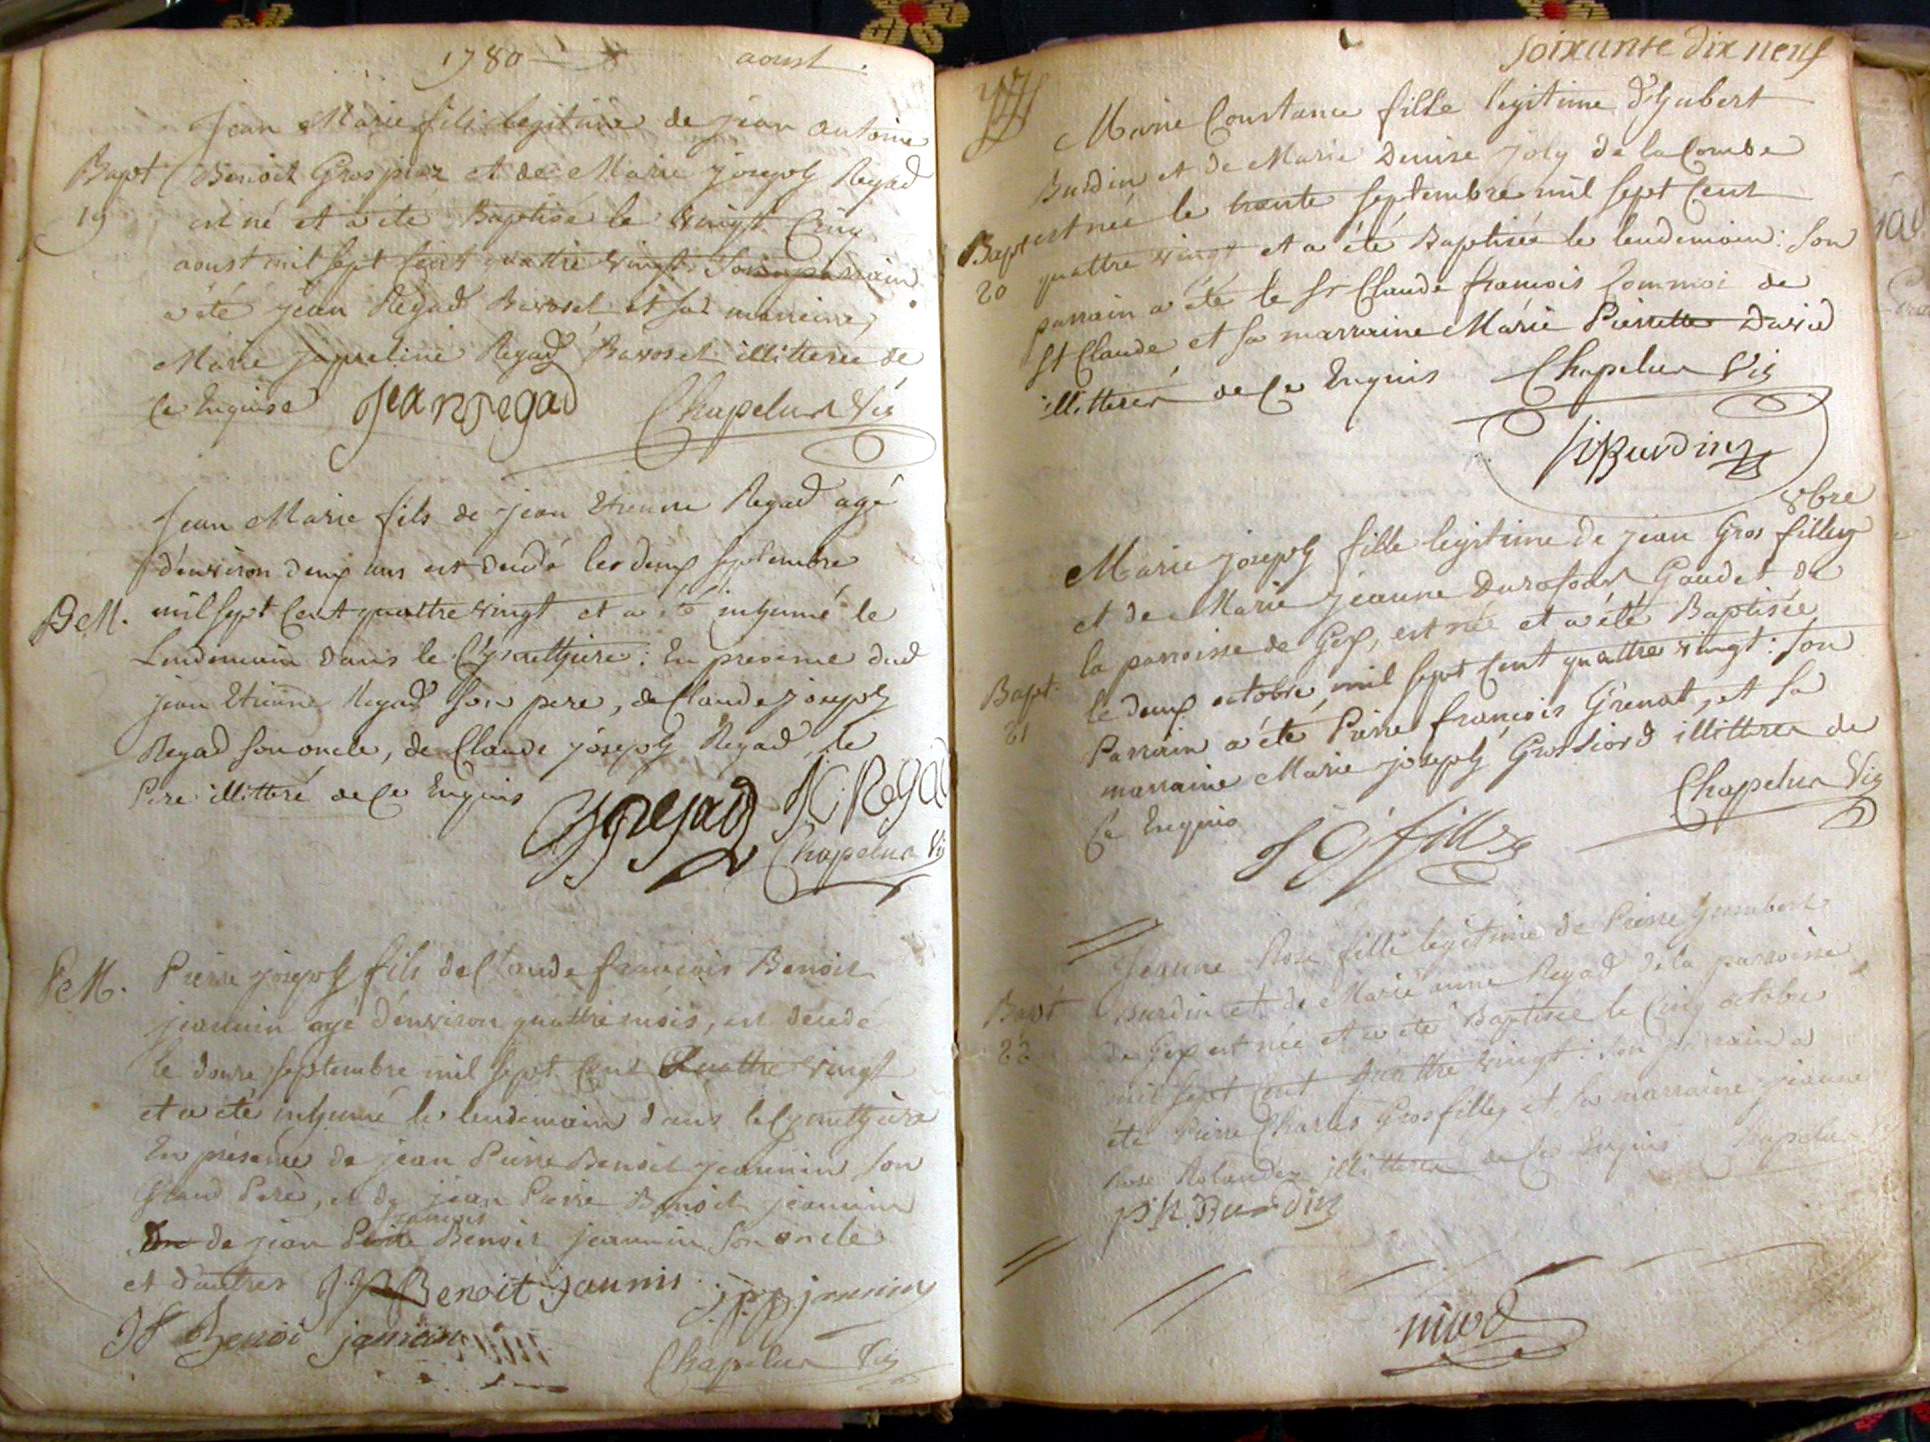 1780 aoust
Jean Marie fils legitime de jean antoine
Bapt Benoit Grospiron et de Marie joseph Regad
19 est né et a été Baptisé le vingt Cinq
aoust mil sept Cent quattre vingt Son parrain
a été jean Regad Bavosel et sa marreine
Marie jaqueline Regad Bavosel illitterée de
Ce Enquise jean regad Chapelu Vic
Jean Marie fils de jean Etienne Regad agé
d'environ deux ans est decédé le deux septembre
B et M. mil sept Cent quattre vingt et a été inhumé le
Lendemain dans le Cymethiere: En presence dud
jean Etienne Regad son pere, de Claude joseph
Regad son oncle, de Claude joseph Regad, le
Pere illitteré de Ce Enquis
Chapelu Vic
Pierre joseph fils de Claude françois Benoit
jeannin agé d'environ quattre mois, est decedé
le douze septembre mil sept Cent Quattre vingt
et a été inhumé le lendemain dans le Cymethiere
En présence de jean Pierre Benoit jeannin son
Grand Pere, et de jean Pierre Benoit jeannin
françois
de jean Pierre Benoit jeannin son oncle
et d'autres JP Benoit jaunin j:p:p:jannin
Benoi jannin
Chapelu Vic
soixante dix neuf
Marie Constance fille legitime d'hubert
Burdin et de Marie Denise joly de la Combe
Bapt est née le trente septembre mil sept Cent
20 quattre vingt et a été Baptisée le lendemain: son
parrain a été le Sr Claude françois Lommoi de
St Claude et sa marraine Marie Pierrette David
illitterée de Ce Enquis Chapelu Vic
h Burdin
8bre
Marie joseph fille legitime de jean Gros filley
et de Marie jeanne Durafour Gaudet de
la parroisse de Gex, est née et a été Baptisée
Bapt. le deux octobre mil sept Cent quattre vingt: son
21 Parrain a été Pierre françois Grenat, et sa
marraine Marie joseph Grossiord illitterée de
Ce Enquis Chapelu Vic
J G fillez
Jeanne Rose fille legitime de Pierre humbert
Bapt Burdin et de Marie anne Regad de la parroisse
22 de Gex est née et a été Baptisée le Cinq octobre
mil sept Cent quattre vingt: son parrain a
été Pierre Charles Grosfilley et sa marraine jeanne
Rose Rolandez illitterée de Ce Enquis Chapelu
p h Burdin